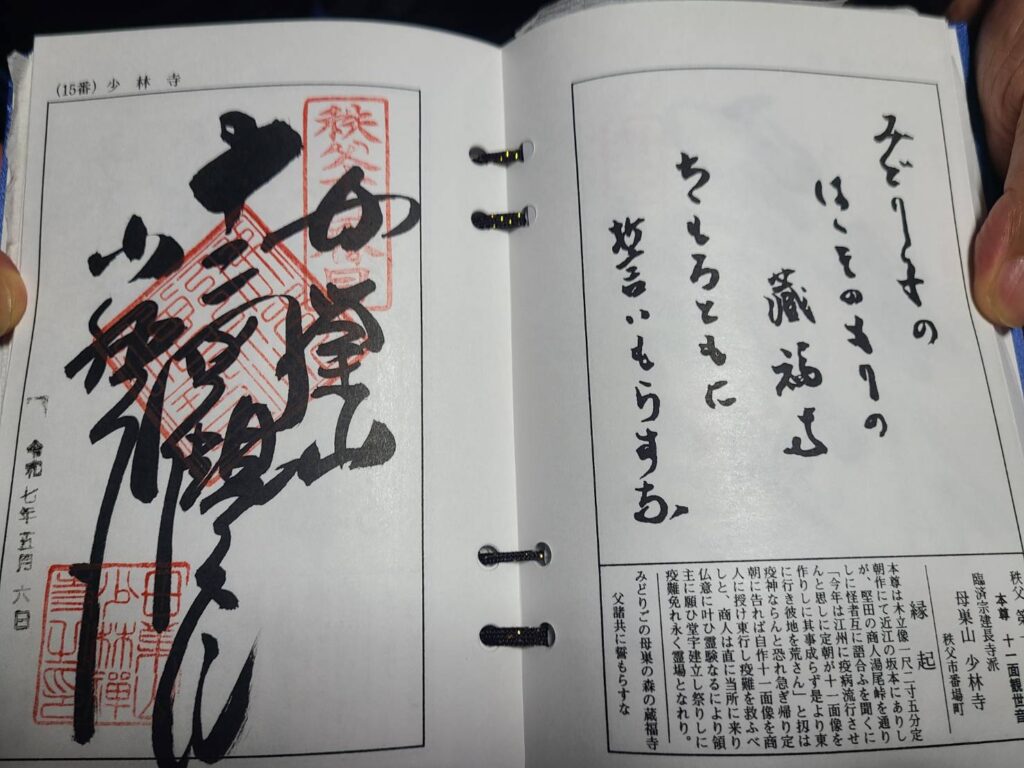 みどり子の
はゝそのもりの
蔵福寺
ちゝもろともに
誓いもらすな
秩父第
本尊 十一面観世音
臨済宗建長寺派
母巣山 少林寺
秩父市番場町
縁起
本尊は木立像一尺二寸五分定
朝作にて近江の坂本にありし
が、堅田の商人湯尾峠を通り
しに怪者互に語合ふを聞くに
「今年は江州に疫病流行させ
んと思しに定朝が十一面像を
作りしに其事成らず是より東
に行き彼地を荒さん」と扨は
疫神ならんと恐れ急ぎ帰り定
朝に告れば自作十一面像を商
人に授け東行し疫難を救ふべ
しと、商人は直に当所に来り
仏意に叶ひ霊験なるにより領
主に願ひ堂宇建立し祭りしに
疫難免れ永く霊場となれり。
みどりごの母巣の森の蔵福寺
父諸共に誓もらすな
(15番) 少林寺
秩父
母巣山
少林寺
令和七年五月六日